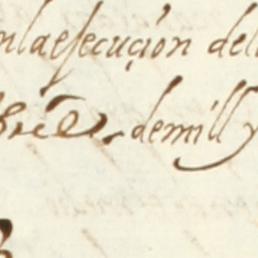 nla esecución del
bre de mill y